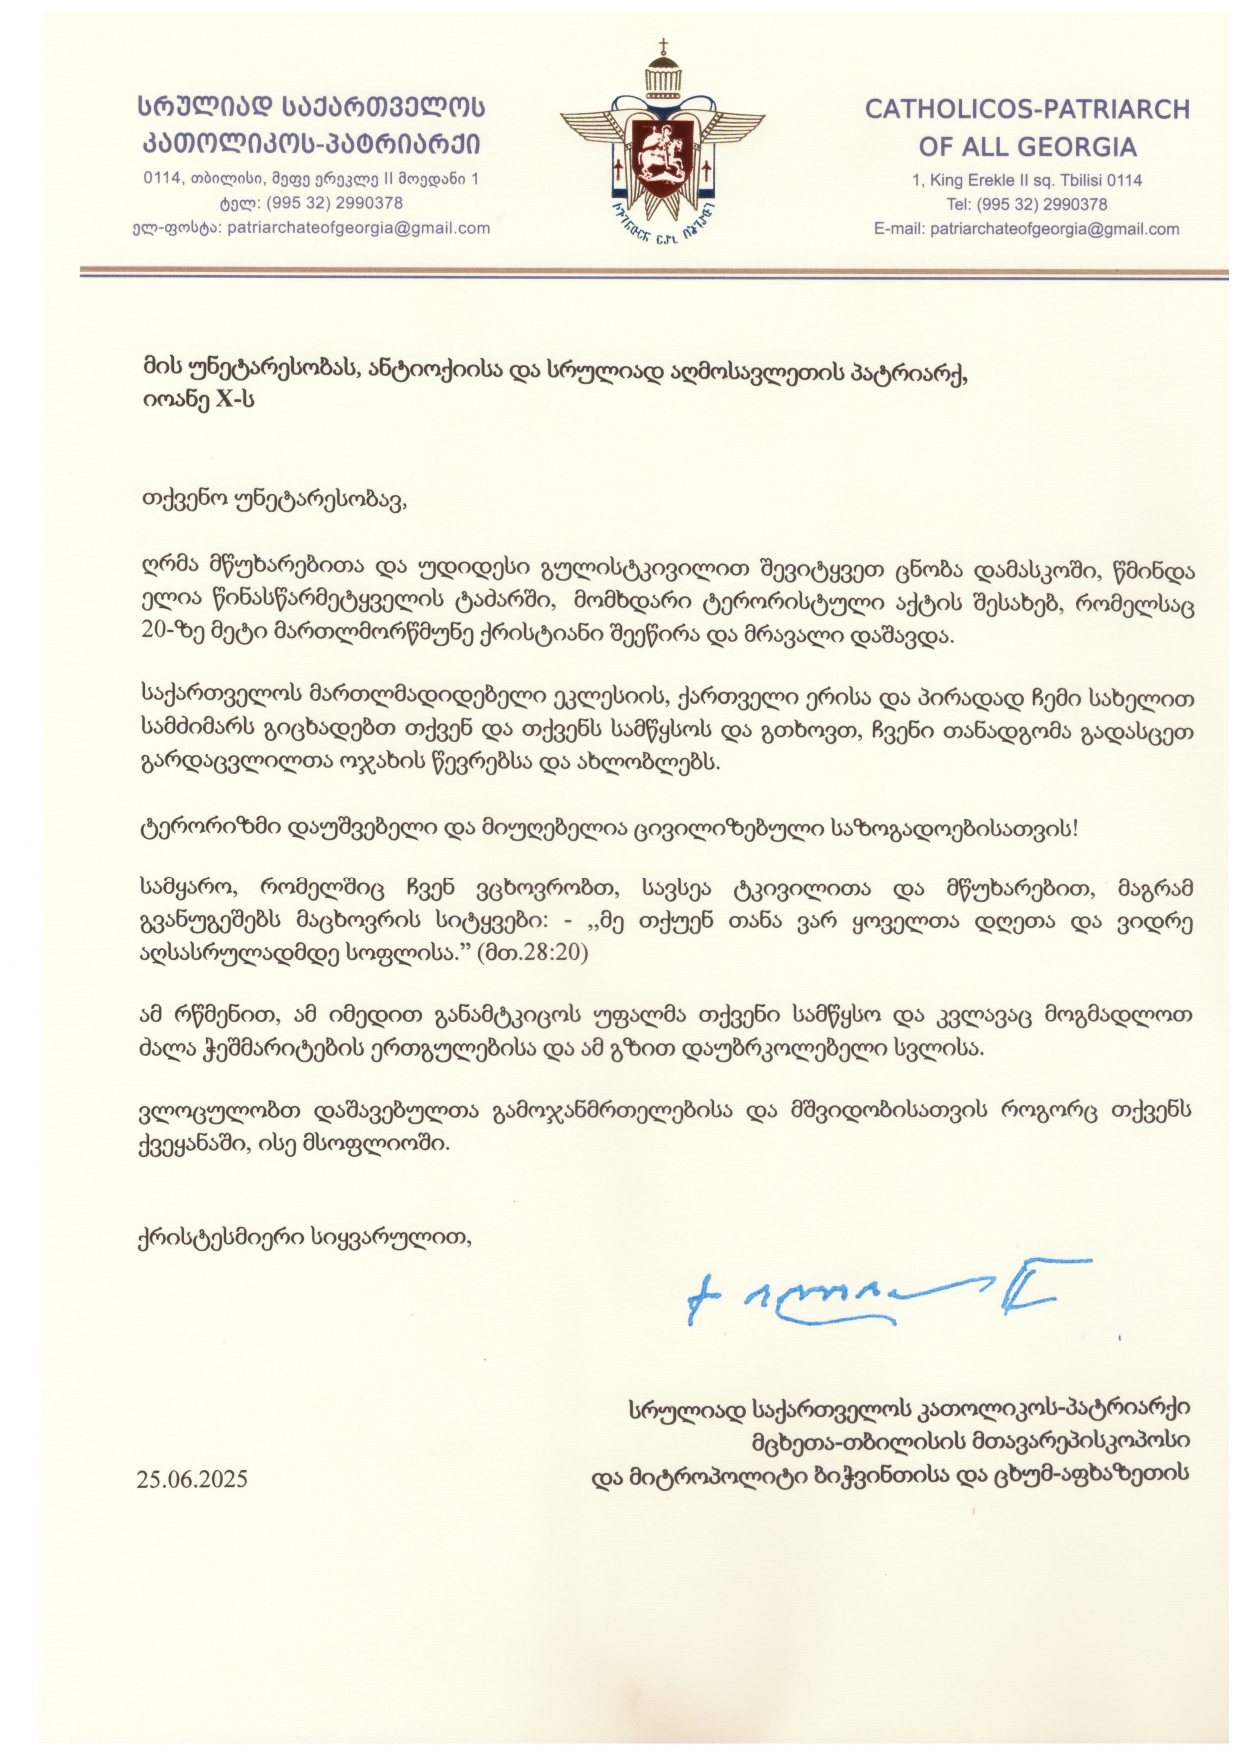 სრულიად საქართველოს
კათოლიკოს-პატრიარქი
0114, თბილისი, მეფე ერეკლე II მოედანი 1
ტელ: (995 32) 2990378
ელ-ფოსტა: patriarchateofgeorgia@gmail.com
CATHOLICOS-PATRIARCH
OF ALL GEORGIA
1, King Erekle II sq. Tbilisi 0114
Tel: (995 32) 2990378
E-mail: patriarchateofgeorgia@gmail.com
მის უნეტარესობას, ანტიოქიისა და სრულიად აღმოსავლეთის პატრიარქ,
იოანე X-ს
თქვენო უნეტარესობავ,
ღრმა მწუხარებითა და უდიდესი გულისტკივილით შევიტყვეთ ცნობა დამასკოში, წმინდა
ელია წინასწარმეტყველის ტაძარში, მომხდარი ტერორისტული აქტის შესახებ, რომელსაც
20-ზე მეტი მართლმორწმუნე ქრისტიანი შეეწირა და მრავალი დაშავდა.
საქართველოს მართლმადიდებელი ეკლესიის, ქართველი ერისა და პირადად ჩემი სახელით
სამძიმარს გიცხადებთ თქვენ და თქვენს სამწყსოს და გთხოვთ, ჩვენი თანადგომა გადასცეთ
გარდაცვლილთა ოჯახის წევრებსა და ახლობლებს.
ტერორიზმი დაუშვებელი და მიუღებელია ცივილიზებული საზოგადოებისათვის!
სამყარო, რომელშიც ჩვენ ვცხოვრობთ, სავსეა ტკივილითა და მწუხარებით, მაგრამ
გვანუგეშებს მაცხოვრის სიტყვები: - „მე თქუენ თანა ვარ ყოველთა დღეთა და ვიდრე
აღსასრულადმდე სოფლისა.” (მთ.28:20)
ამ რწმენით, ამ იმედით განამტკიცოს უფალმა თქვენი სამწყსო და კვლავაც მოგმადლოთ
ძალა ჭეშმარიტების ერთგულებისა და ამ გზით დაუბრკოლებელი სვლისა.
ვლოცულობთ დაშავებულთა გამოჯანმრთელებისა და მშვიდობისათვის როგორც თქვენს
ქვეყანაში, ისე მსოფლიოში.
ქრისტესმიერი სიყვარულით,
სრულიად საქართველოს კათოლიკოს-პატრიარქი
მცხეთა-თბილისის მთავარეპისკოპოსი
და მიტროპოლიტი ბიჭვინთისა და ცხუმ-აფხაზეთის
25.06.2025